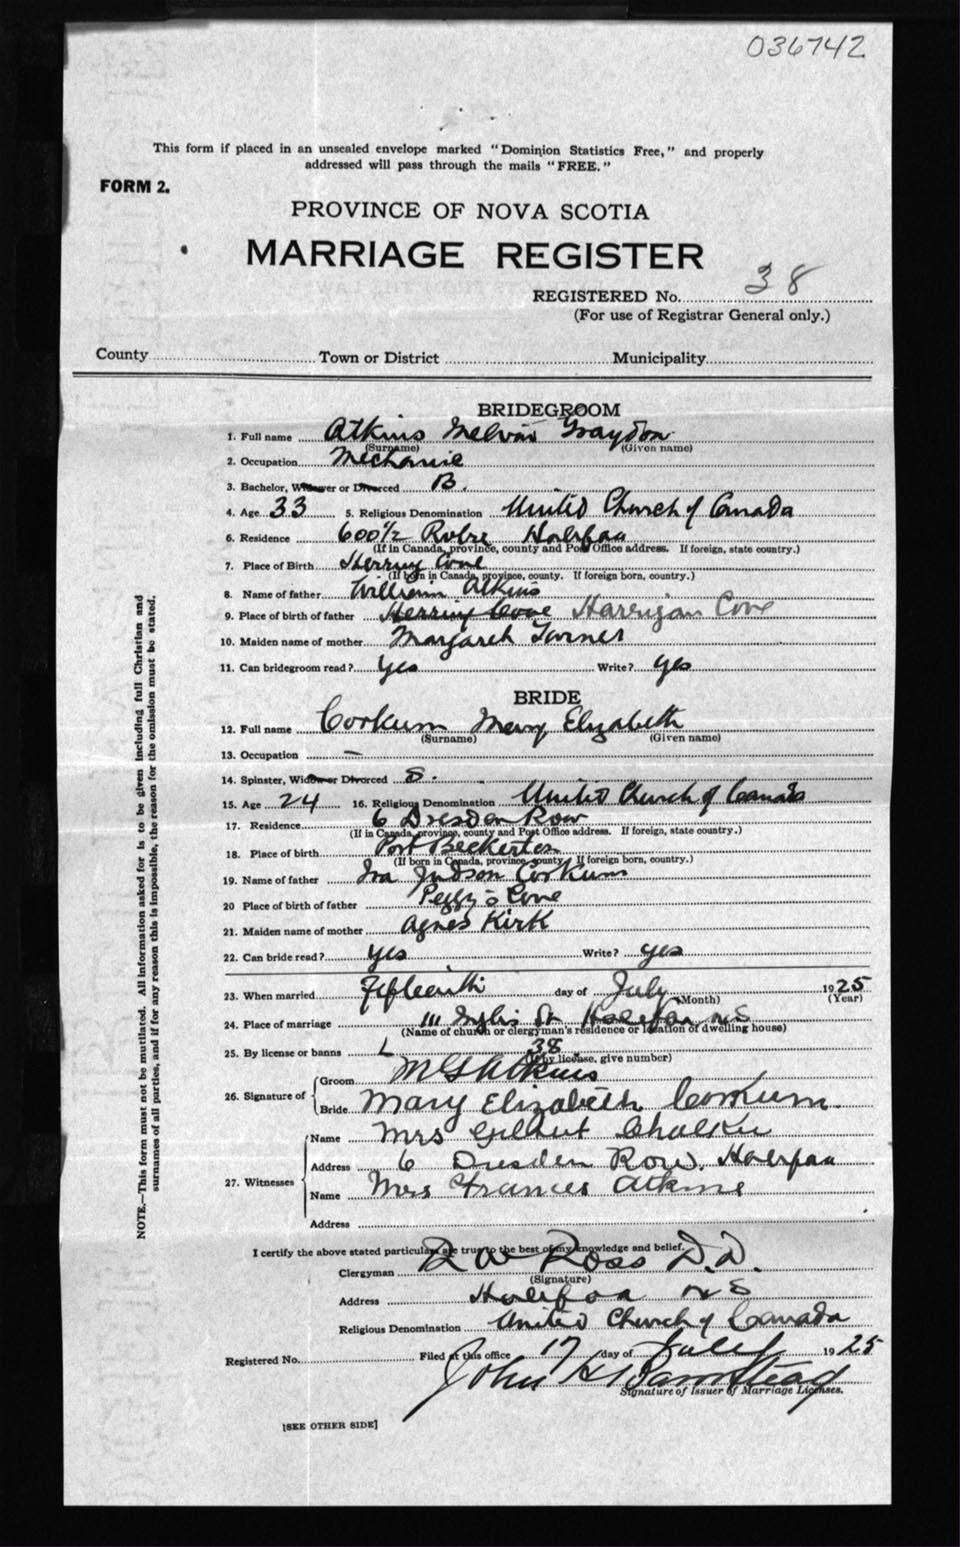 036742
This form if placed in an unsealed envelope marked "Dominion Statistics Free," and properly
addressed will pass through the mails "FREE."
FORM 2.
PROVINCE OF NOVA SCOTIA
MARRIAGE REGISTER
REGISTERED No. 38
(For use of Registrar General only.)
County Town or District Municipality
BRIDEGROOM
1. Full name Atkins Melvin Graydon
(Surname) (Given name)
2. Occupation Mechanic
3. Bachelor, Widower or Divorced B.
4. Age 33 5. Religious Denomination United Church of Canada
6. Residence 600½ Robie Halifax
(If in Canada, province, county and Post Office address. If foreign, state country.)
7. Place of Birth Herring Cove
(If born in Canada, province, county. If foreign born, country.)
8. Name of father William Atkins
9. Place of birth of father Herring Cove Harrigan Cove
10. Maiden name of mother Margaret Turner
11. Can bridegroom read? Yes Write? Yes
BRIDE
12. Full name Corkum Mary Elizabeth
(Surname) (Given name)
13. Occupation —
14. Spinster, Widow or Divorced S.
15. Age 24 16. Religious Denomination United Church of Canada
17. Residence 6 Dresden Row
(If in Canada, province, county and Post Office address. If foreign, state country.)
18. Place of birth Port Beckerton
(If born in Canada, province, county. If foreign born, country.)
19. Name of father Ira Judson Corkum
20 Place of birth of father Peggy's Cove
21. Maiden name of mother Agnes Kirk
22. Can bride read? Yes Write? Yes
23. When married Fifteenth day of July 1925
(Month) (Year)
24. Place of marriage 111 Inglis St Halifax NS
(Name of church or clergyman's residence or location of dwelling house)
25. By license or banns L 38
(If by license, give number)
26. Signature of
Groom M G Atkins
Bride Mary Elizabeth Corkum.
27. Witnesses
Name Mrs Gilbert
Address 6 Dresden Row, Halifax
Name Mrs Frances Atkins
Address
I certify the above stated particulars are true to the best of my knowledge and belief.
Clergyman W Ross D.D.
(Signature)
Address Halifax NS
Religious Denomination United Church of Canada
Registered No. Filed at this office 17 day of July 1925
John H Barnstead
Signature of Issuer of Marriage Licenses.
[SEE OTHER SIDE]
NOTE.—This form must not be mutilated. All information asked for is to be given including full Christian and
surnames of all parties, and if for any reason this is impossible, the reason for the omission must be stated.